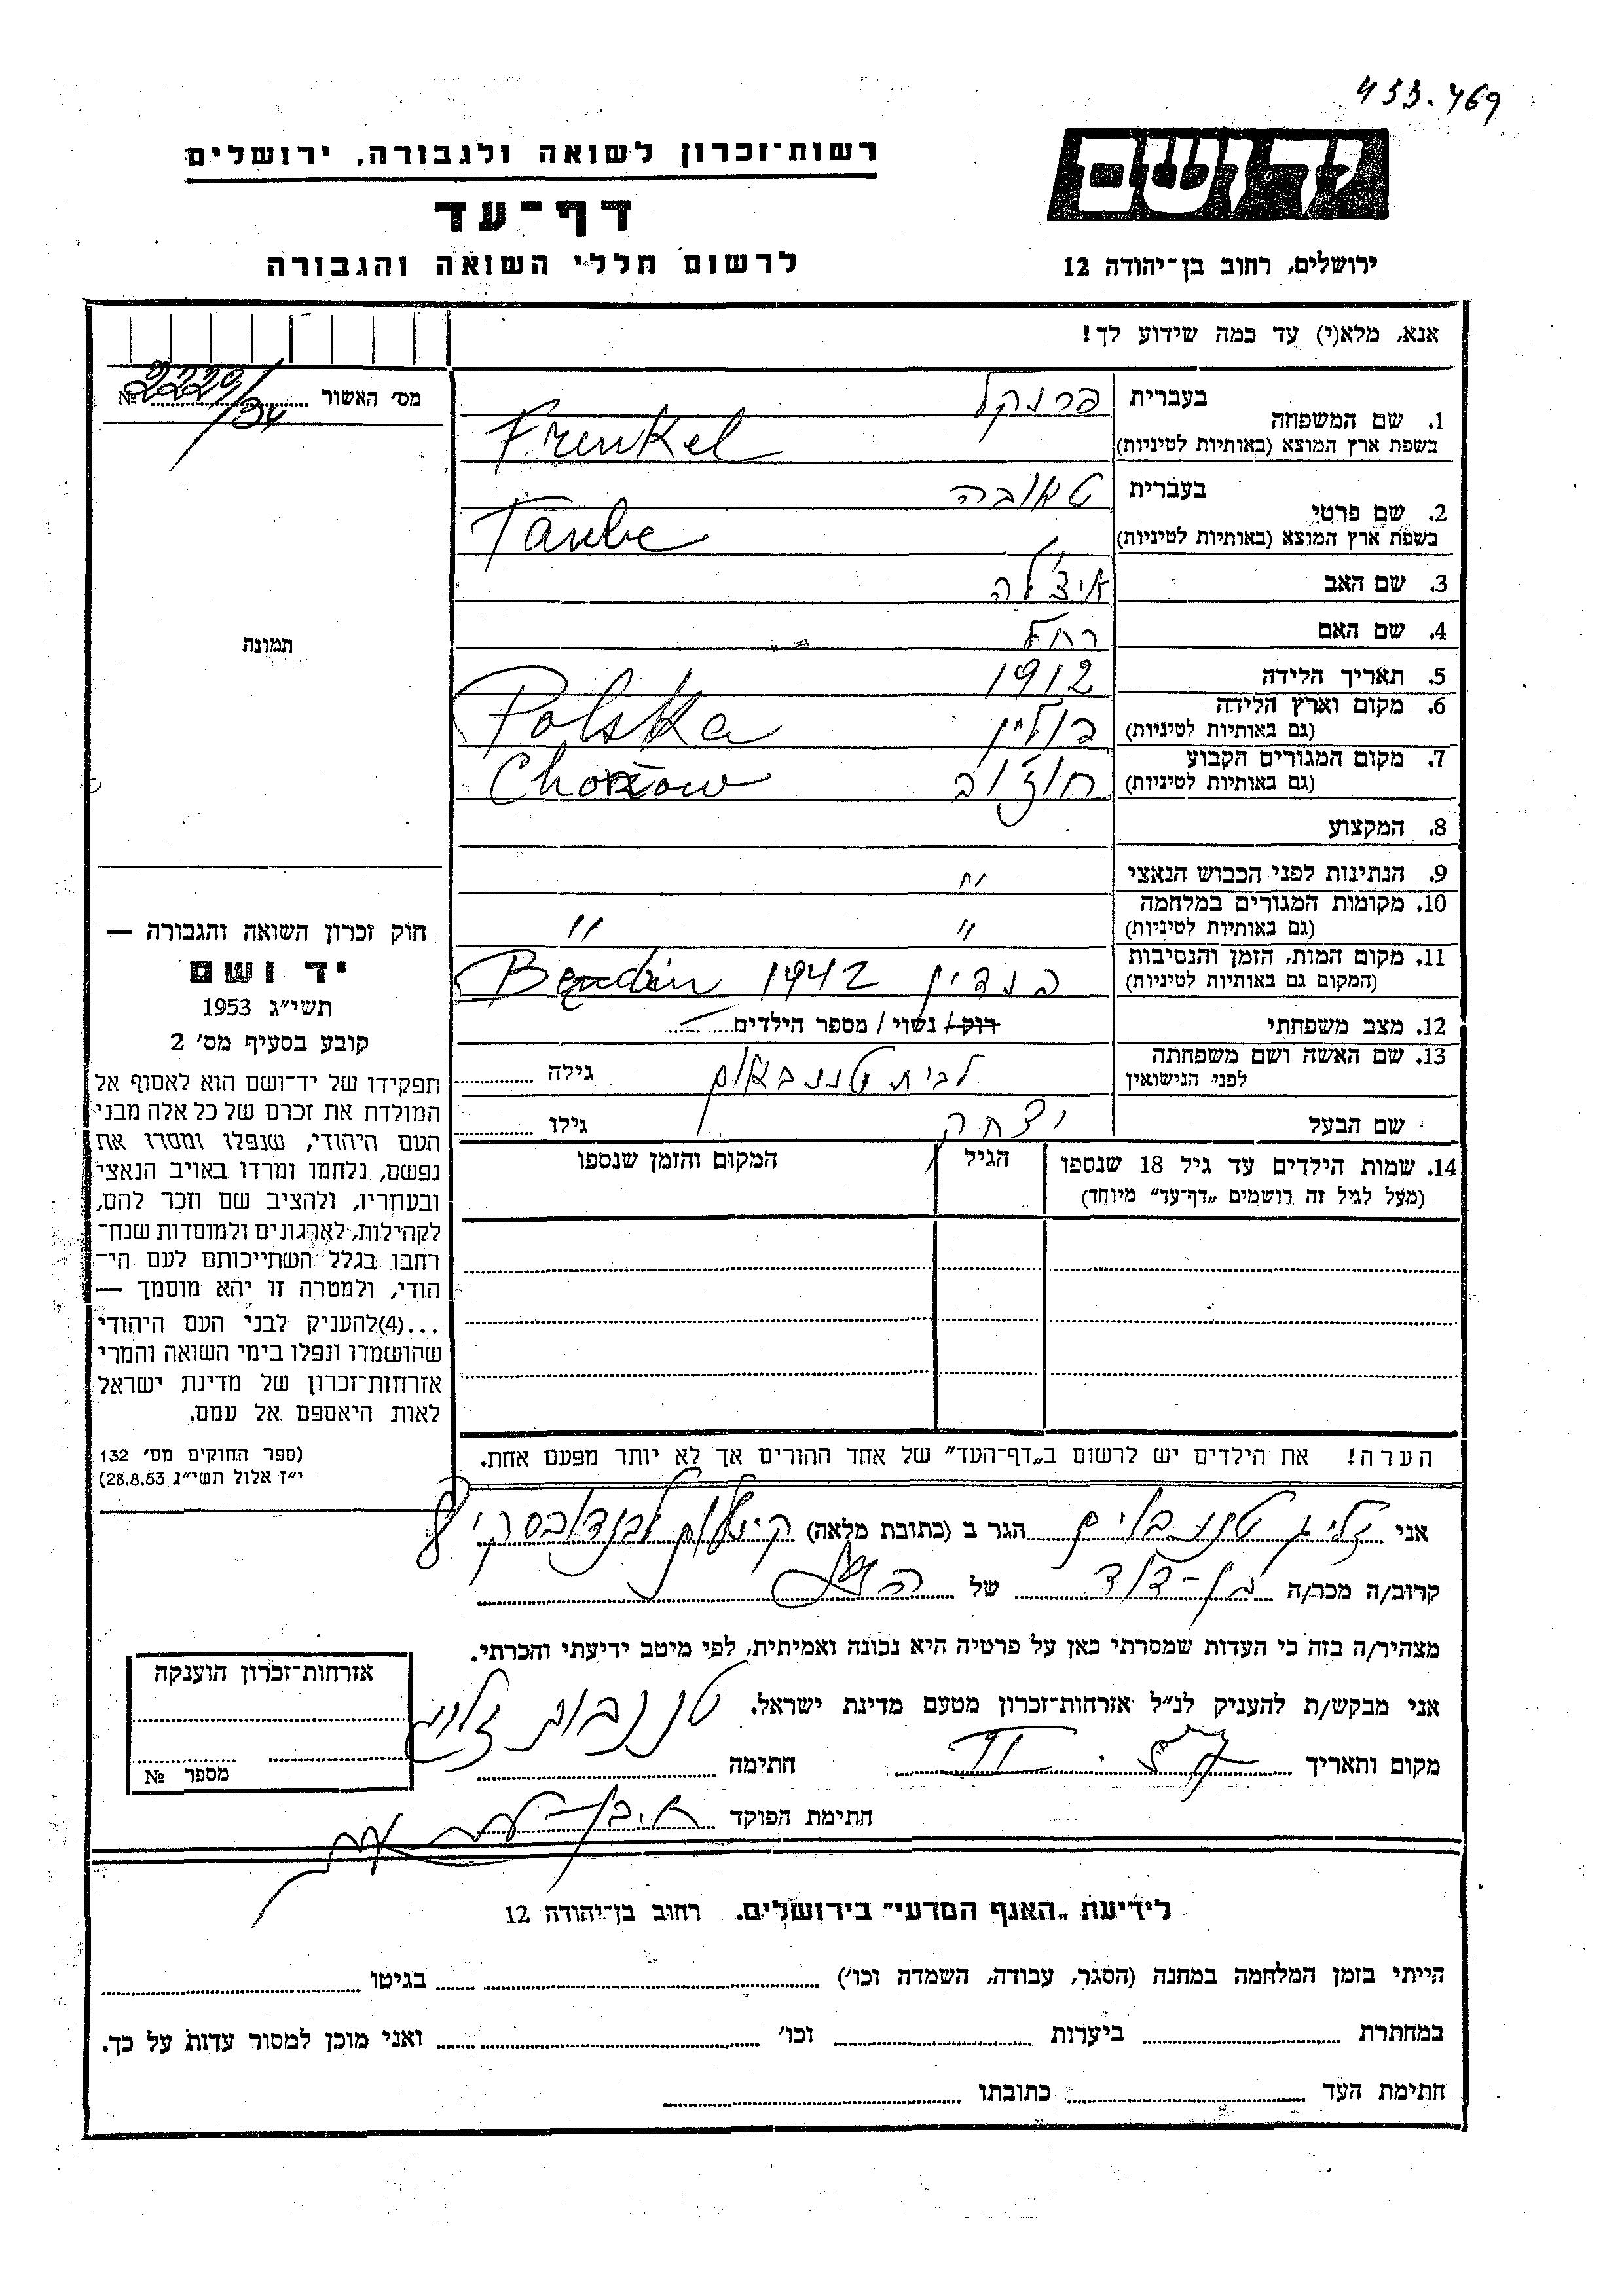 433.469
רשות־זכרון לשואה ולגבורה, ירושלים
דף־עד
לרשום חללי השואה והגבורה
יד ושם
ירושלים, רחוב בן־יהודה 12
אנא, מלא(י) עד כמה שידוע לך!
מס׳ האשור № 2229/34
1. שם המשפחה בעברית פרנקל
בשפת ארץ המוצא (באותיות לטיניות) Frenkel
2. שם פרטי בעברית טאובה
בשפת ארץ המוצא (באותיות לטיניות) Taube
3. שם האב איצ׳לה
4. שם האם רחל
5. תאריך הלידה 1912
6. מקום וארץ הלידה פולין Polska
(גם באותיות לטיניות)
7. מקום המגורים הקבוע חוז׳וב Chorzow
(גם באותיות לטיניות)
8. המקצוע
9. הנתינות לפני הכבוש הנאצי "
10. מקומות המגורים במלחמה " "
(גם באותיות לטיניות)
11. מקום המות, הזמן והנסיבות בנדין 1942 Bendin
(המקום גם באותיות לטיניות)
12. מצב משפחתי רוק/ נשוי / מספר הילדים
13. שם האשה ושם משפחתה לבית טננבאום גילה
לפני הנישואין
שם הבעל יצחק גילו
14. שמות הילדים עד גיל 18 שנספו הגיל המקום והזמן שנספו
(מעל לגיל זה רושמים „דף־עד״ מיוחד)
הערה! את הילדים יש לרשום ב„דף־העד״ של אחד ההורים אך לא יותר מפעם אחת.
תמונה
חוק זכרון השואה והגבורה —
יד ושם
תשי״ג 1953
קובע בסעיף מס׳ 2
תפקידו של יד־ושם הוא לאסוף אל
המולדת את זכרם של כל אלה מבני
העם היהודי, שנפלו ומסרו את
נפשם, נלחמו ומרדו באויב הנאצי
ובעוזריו, ולהציב שם וזכר להם,
לקהילות, לארגונים ולמוסדות שנח־
רחבו בגלל השתייכותם לעם הי־
הודי, ולמטרה זו יהא מוסמך —
...(4)להעניק לבני העם היהודי
שהושמדו ונפלו בימי השואה והמרי
אזרחות־זכרון של מדינת ישראל
לאות היאספם אל עמם.
(ספר החוקים מס׳ 132
י״ז אלול תשי״ג 28.8.53)
אני זליג טננבוים הגר ב (כתובת מלאה)
קרוב/ה מכר/ה בן-דוד של
מצהיר/ה בזה כי העדות שמסרתי כאן על פרטיה היא נכונה ואמיתית, לפי מיטב ידיעתי והכרתי.
אני מבקש/ת להעניק לנ״ל אזרחות־זכרון מטעם מדינת ישראל.
מקום ותאריך חתימה טננבוים זליג
חתימת הפוקד
אזרחות־זכרון הוענקה
מספר №
לידיעת „האגף המדעי״ בירושלים. רחוב בן־יהודה 12
הייתי בזמן המלחמה במחנה (הסגר, עבודה, השמדה וכו׳) בגיטו
במחתרת ביערות וכו׳ ואני מוכן למסור עדות על כך.
חתימת העד כתובתו